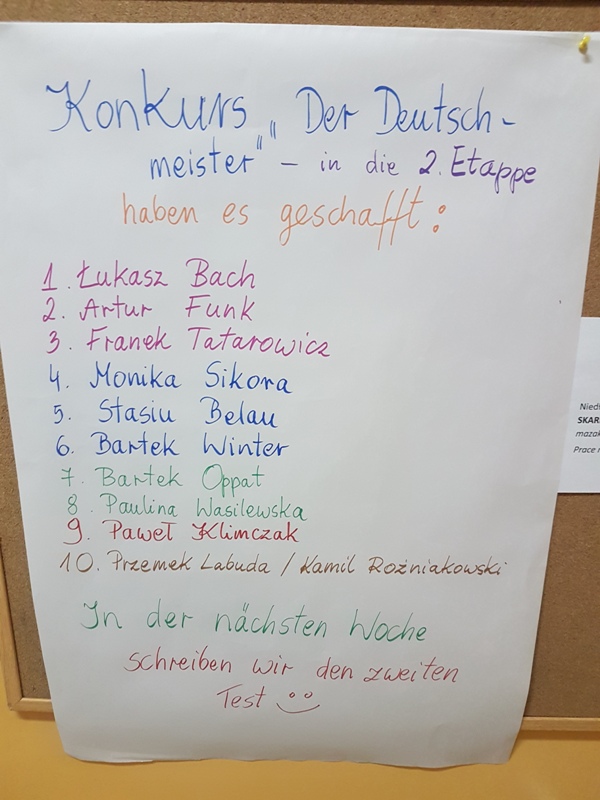 Konkurs „Der Deutsch-
meister" – in die 2. Etappe
haben es geschafft:
1. Łukasz Bach
2. Artur Funk
3. Franek Tatarowicz
4. Monika Sikora
5. Stasiu Belau
6. Bartek Winter
7. Bartek Oppat
8. Paulina Wasilewska
9. Paweł Klimczak
10. Przemek Labuda / Kamil Rożniakowski
In der nächsten Woche
schreiben wir den zweiten
Test
SKAR
Prace